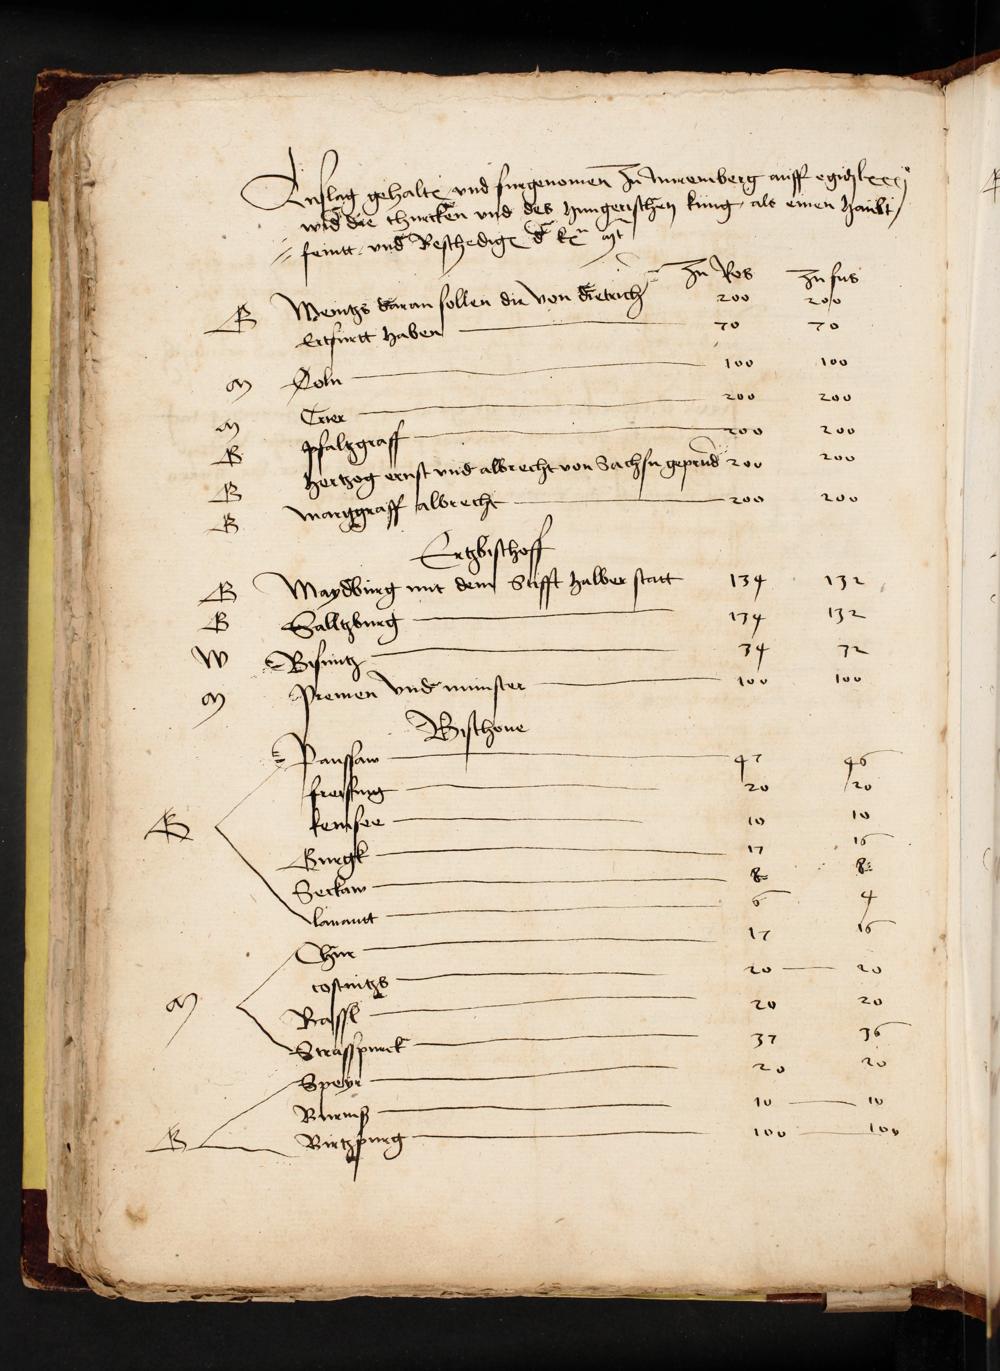 Anslag gehaltē und furgenomen zu Nuremberg auff egidi lxxxjº
wid̄ die thurcken und des hungerischen kunig als einen haubt
feintt und Beschediger d̄ kē mt
zu Ros zu fus
B Meintzs daran sollen die von dietrich 200 200
Ertfurtt haben 70 70
M Coln 100 100
M Trier 200 200
B pfaltzgraff 200 200
B hertzog ernst und albrecht von Sachsn geprud̄ 200 200
B marggraff albrecht 200 200
Ertzbischoff
B Maydburg mit dem Stifft halberstatt 134 132
B Saltzburg 134 132
W Bisuntz 34 32
M Premen und munster 100 100
Bischove
Passaw 47 46
B freissing 20 20
kemsee 10 10
Gurgk 17 16
Seckaw 8 8
lavantt 6 4
Chur 17 16
costnitzs 20 20
M Bassl 20 20
Strasspurck 37 36
Speyr 20 20
Wurmß 10 10
B Wirtzpurg 100 100